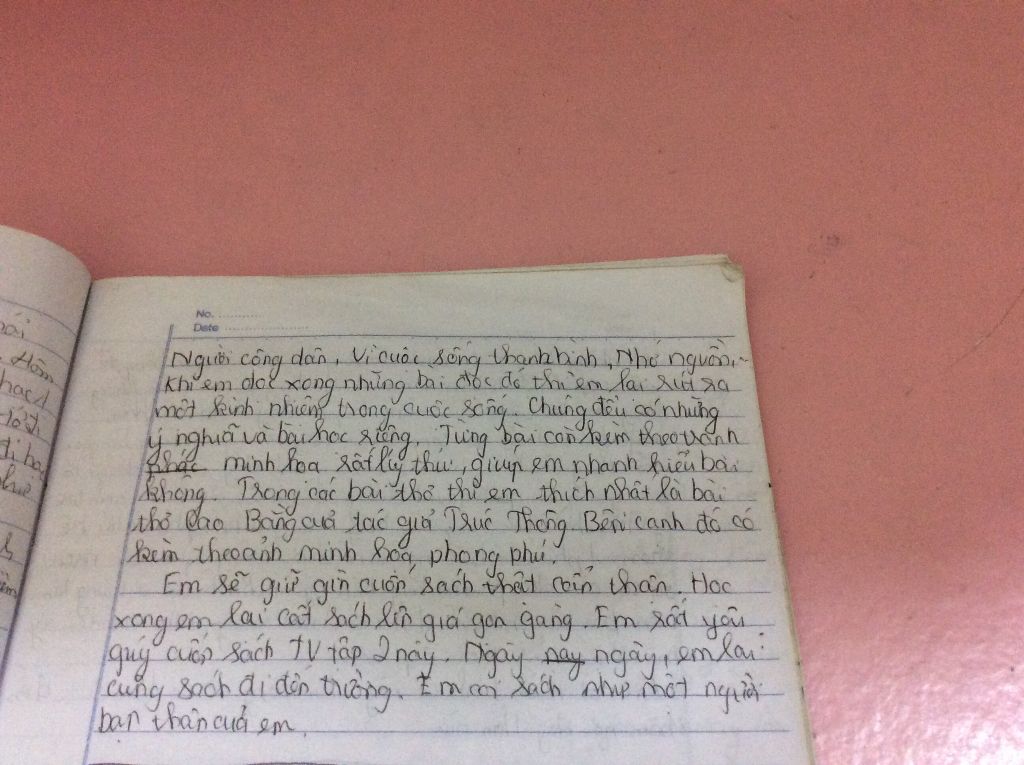 ái
Hôm
No. ............
Date ........................
Người công dân, Vì cuộc sống thanh bình, Nhớ nguồn,
Khi em đọc xong những bài đọc đó thì em lại rút ra
một kinh nhiêm trong cuộc sống. Chúng đều có những
ý nghĩa và bài học riêng. Từng bài còn kèm theo tranh
minh hoa rất lý thú, giúp em nhanh hiểu bài
không. Trong các bài thơ thì em thích nhất là bài
thơ Cao Bằng của tác giả Trúc Thông. Bên cạnh đó có
kèm theo ảnh minh hoạ phong phú.
Em sẽ giữ gìn cuốn sách thật cẩn thân. Học
xong em lại cất sách lên giá gọn gàng. Em rất yêu
quý cuốn sách TV tập 2 này. Ngày nay ngày, em lại
cùng sách đi đến trường. Em coi sách như một người
bạn thân của em.